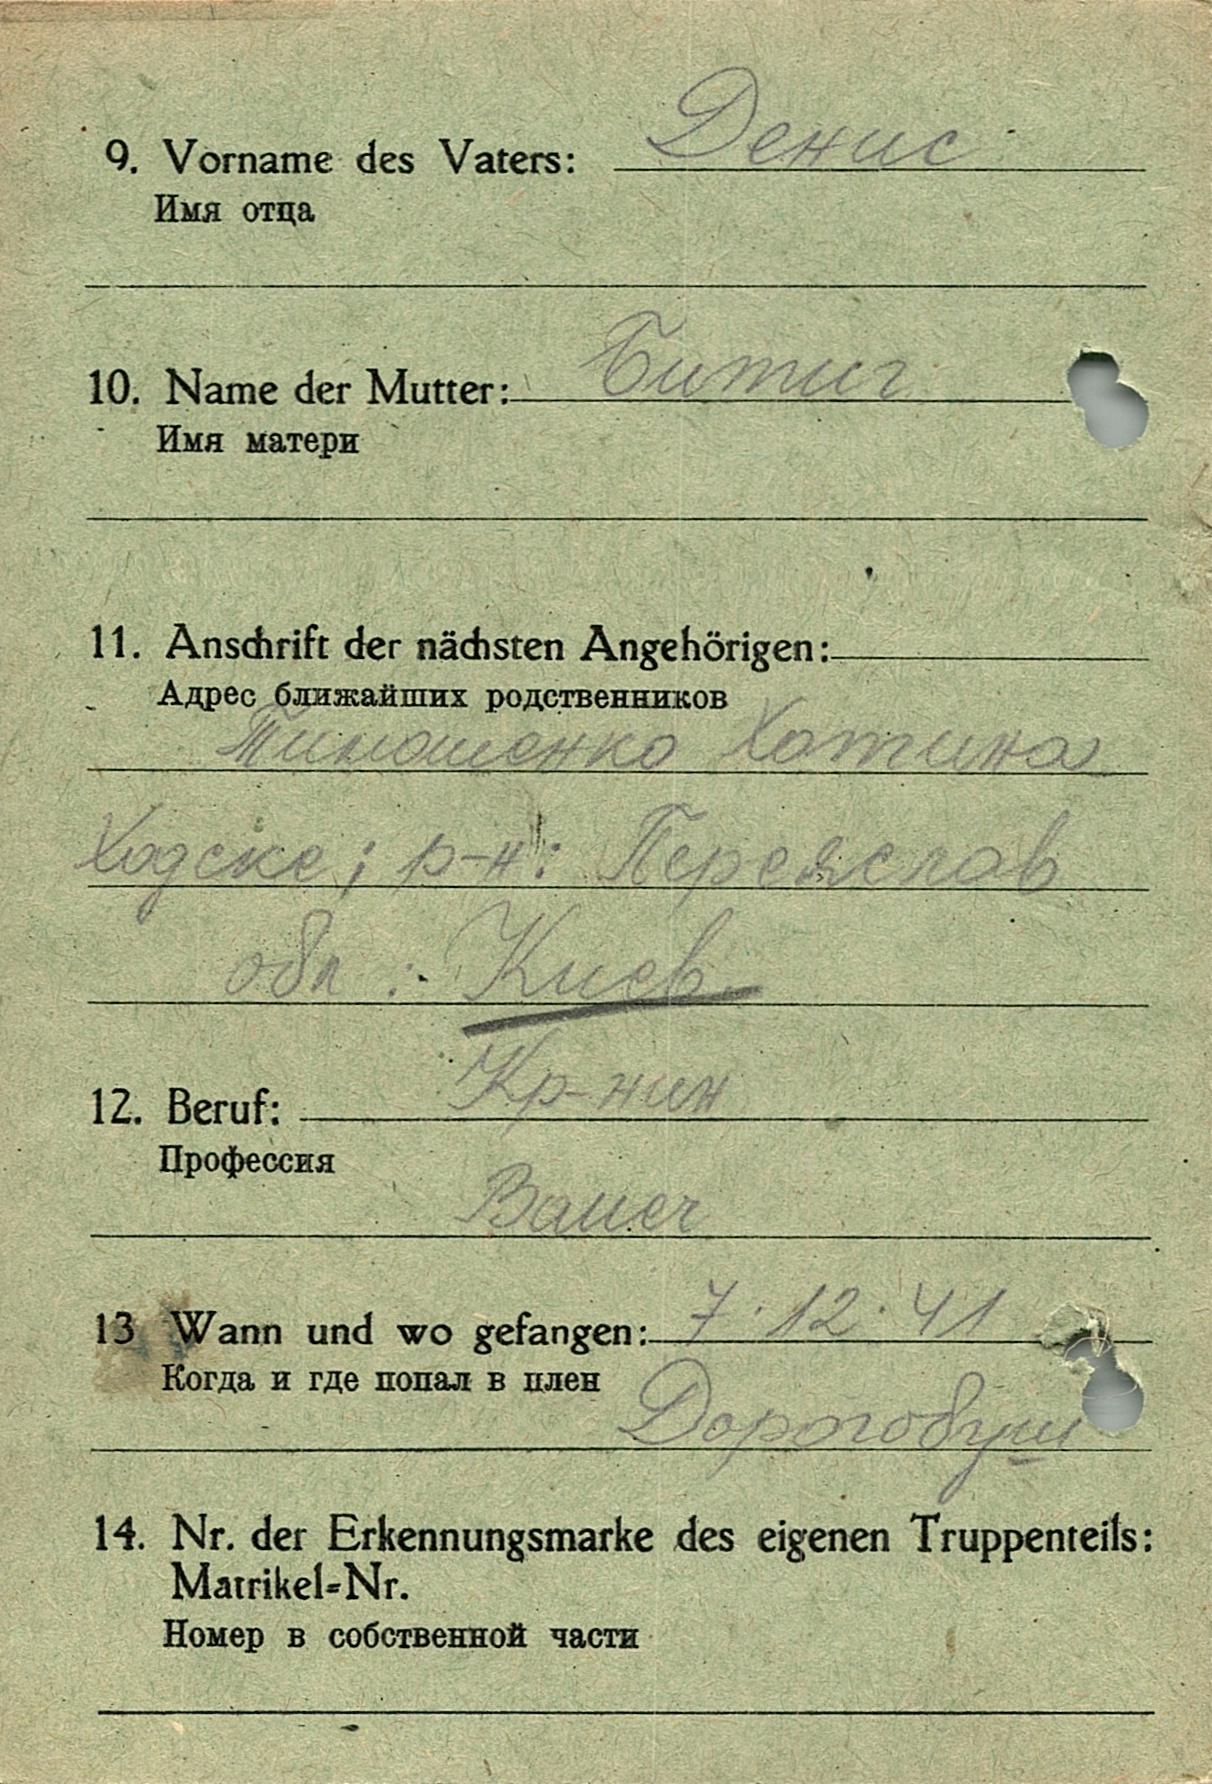 9. Vorname des Vaters: Денис
Имя отца
10. Name der Mutter: Битиг
Имя матери
11. Anschrift der nächsten Angehörigen:
Адрес ближайших родственников
Тимошенко Хотина
Ходске; р-н: Переяслав
обл: Киев
12. Beruf: Кр-нин
Профессия
Bauer
13 Wann und wo gefangen: 7.12.41
Когда и где попал в плен
Дорогобуш
14. Nr. der Erkennungsmarke des eigenen Truppenteils:
Matrikel=Nr.
Номер в собственной части